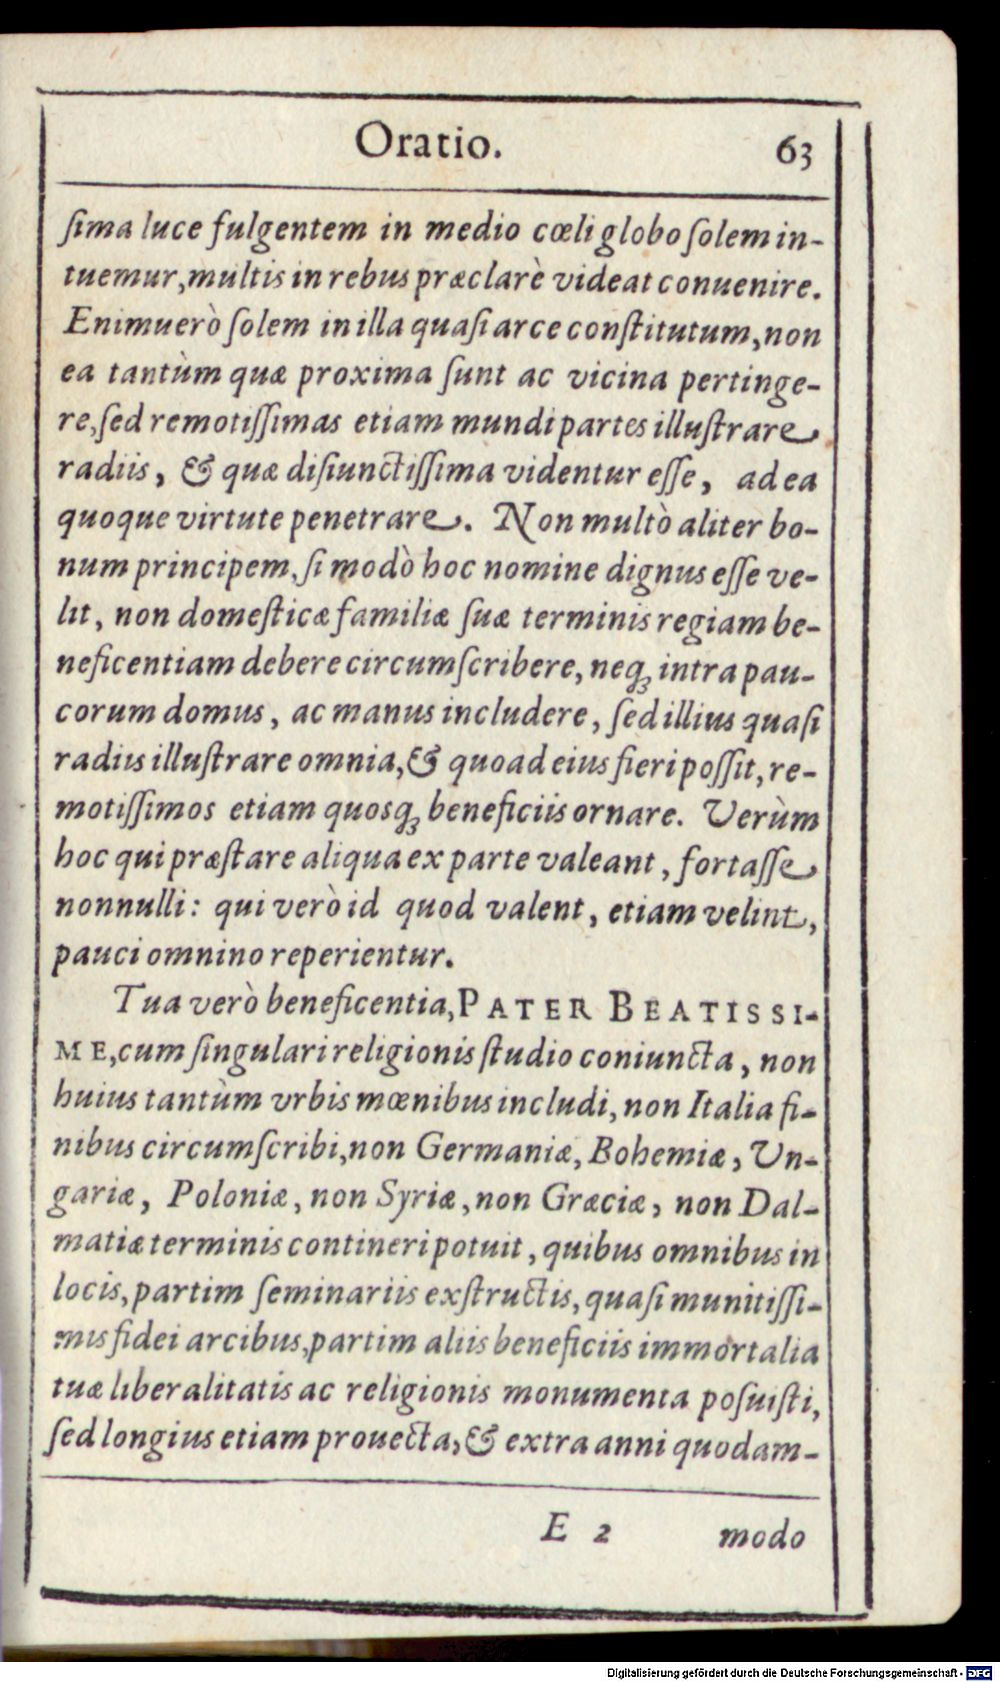 Oratio. 63
ſima luce fulgentem in medio cœli globo ſolem in-
tuemur, multis in rebus præclarè videat conuenire.
Enimuerò ſolem in illa quaſi arce conſtitutum, non
ea tantùm quæ proxima ſunt ac vicina pertinge-
re, ſed remotiſſimas etiam mundi partes illuſtrare
radiis, & quæ diſiunctiſſima videntur eſſe, ad ea
quoque virtute penetrare. Non multò aliter bo-
num principem, ſi modò hoc nomine dignus eſſe ve-
lit, non domeſticæ familiæ ſuæ terminis regiam be-
neficentiam debere circumſcribere, neqꝫ intra pau-
corum domus, ac manus includere, ſed illius quaſi
radiis illuſtrare omnia, & quoad eius fieri poſſit, re-
motiſſimos etiam quosqꝫ beneficiis ornare. Verùm
hoc qui præſtare aliqua ex parte valeant, fortaſſe
nonnulli: qui verò id quod valent, etiam velint,
pauci omnino reperientur.
Tua verò beneficentia, PATER BEATISSI-
ME, cum ſingulari religionis ſtudio coniuncta, non
huius tantùm vrbis mœnibus includi, non Italia fi-
nibus circumſcribi, non Germaniæ, Bohemiæ, Vn-
gariæ, Poloniæ, non Syriæ, non Græciæ, non Dal-
matiæ terminis contineri potuit, quibus omnibus in
locis, partim ſeminariis exſtructis, quaſi munitiſſi-
mis fidei arcibus, partim aliis beneficiis immortalia
tuæ liberalitatis ac religionis monumenta poſuiſti,
ſed longius etiam prouecta, & extra anni quodam-
E 2 modo
Digitalisierung gefördert durch die Deutsche Forschungsgemeinschaft - DFG